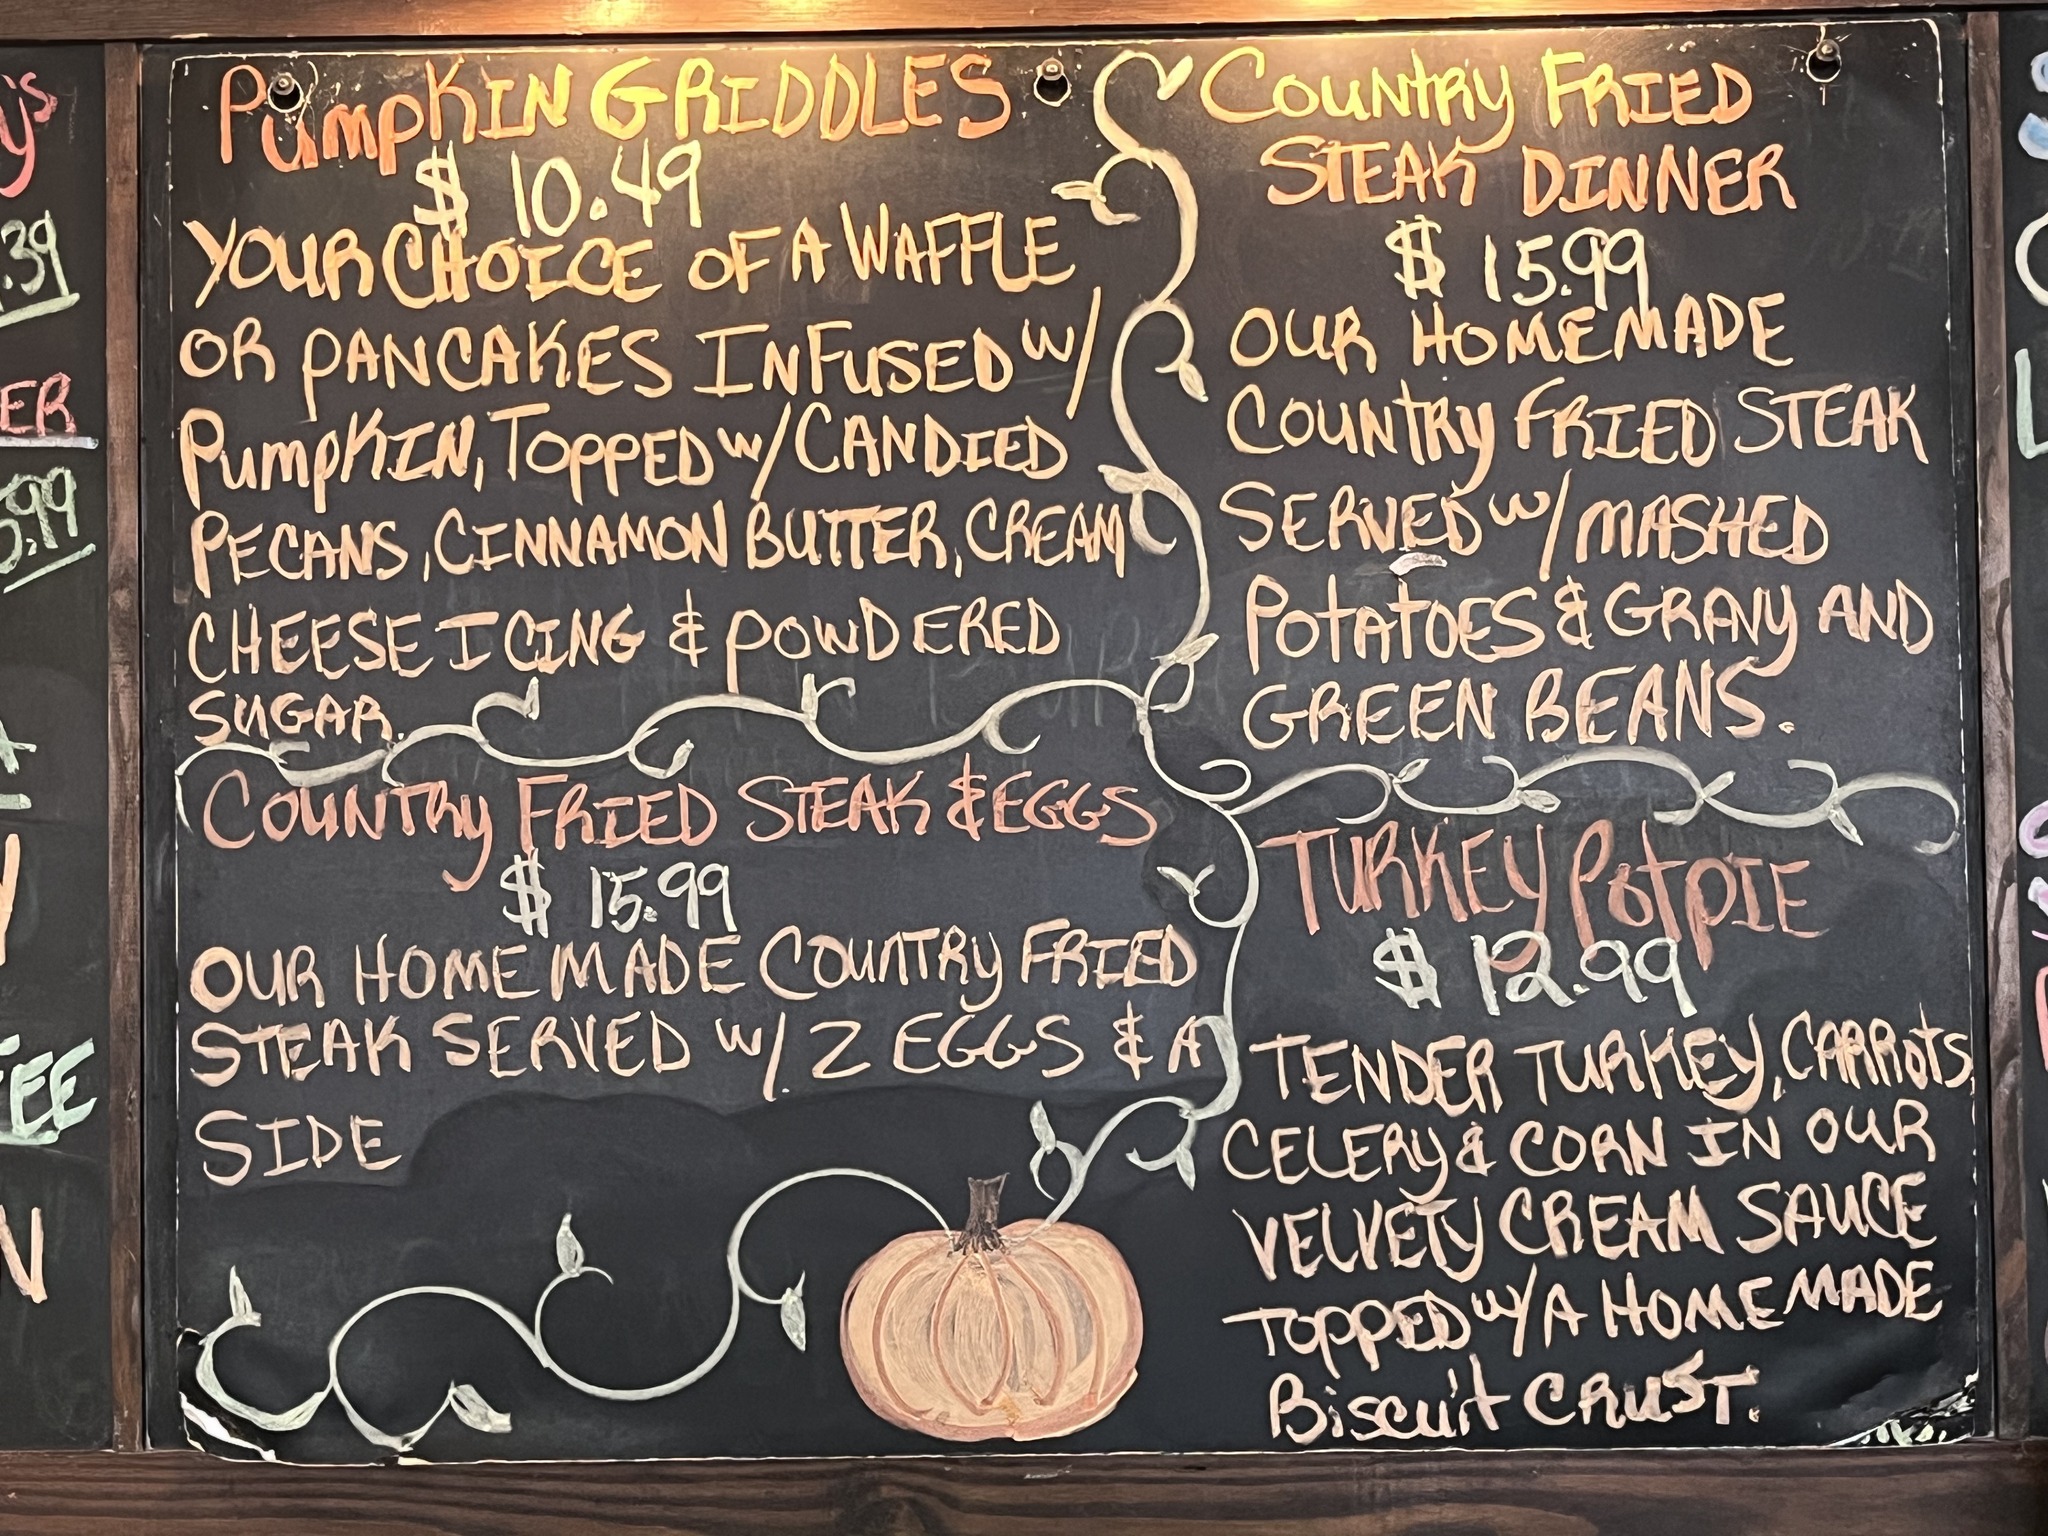 Pumpkin Griddles
$ 10.49
Your Choice of a Waffle
or Pancakes Infused w/
Pumpkin, Topped w/ Candied
Pecans, Cinnamon Butter, Cream
Cheese Icing & Powdered
Sugar.
Country Fried Steak & Eggs
$ 15.99
Our Homemade Country Fried
Steak Served w/ 2 Eggs & A
Side
Country Fried
Steak Dinner
$ 15.99
Our Homemade
Country Fried Steak
Served w/ Mashed
Potatoes & Gravy and
Green Beans.
Turkey Potpie
$ 12.99
Tender Turkey, Carrots,
Celery & Corn in Our
Velvety Cream Sauce
Topped w/ A Homemade
Biscuit Crust.